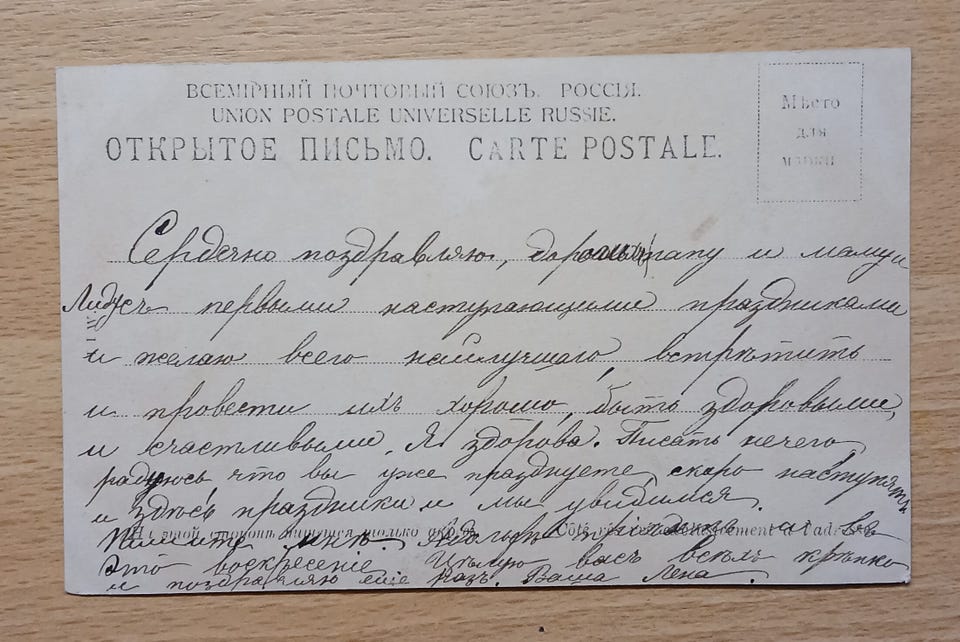 ВСЕМІРНЫЙ ПОЧТОВЫЙ СОЮЗЪ. РОССІЯ.
UNION POSTALE UNIVERSELLE RUSSIE.
ОТКРЫТОЕ ПИСЬМО. CARTE POSTALE.
Мѣсто
для
марки
Сердечно поздравляю, папу и маму и
съ первыми наступающими праздниками
и желаю всего наилучшаго, встрѣтить
и провести ихъ хорошо, быть здоровыми,
и счастливыми. Я здорова. Писать нечего
радуюсь, что вы уже празднуете, скоро наступятъ
и здѣсь праздники и мы увидимся.
На этой сторонѣ пишется только адресъ. Côté réservé exclusivement à l'adresse
Пишите мнѣ. въ
это воскресеніе. Цѣлую васъ всѣхъ крѣпко
и поздравляю еще разъ. Ваша Лена.